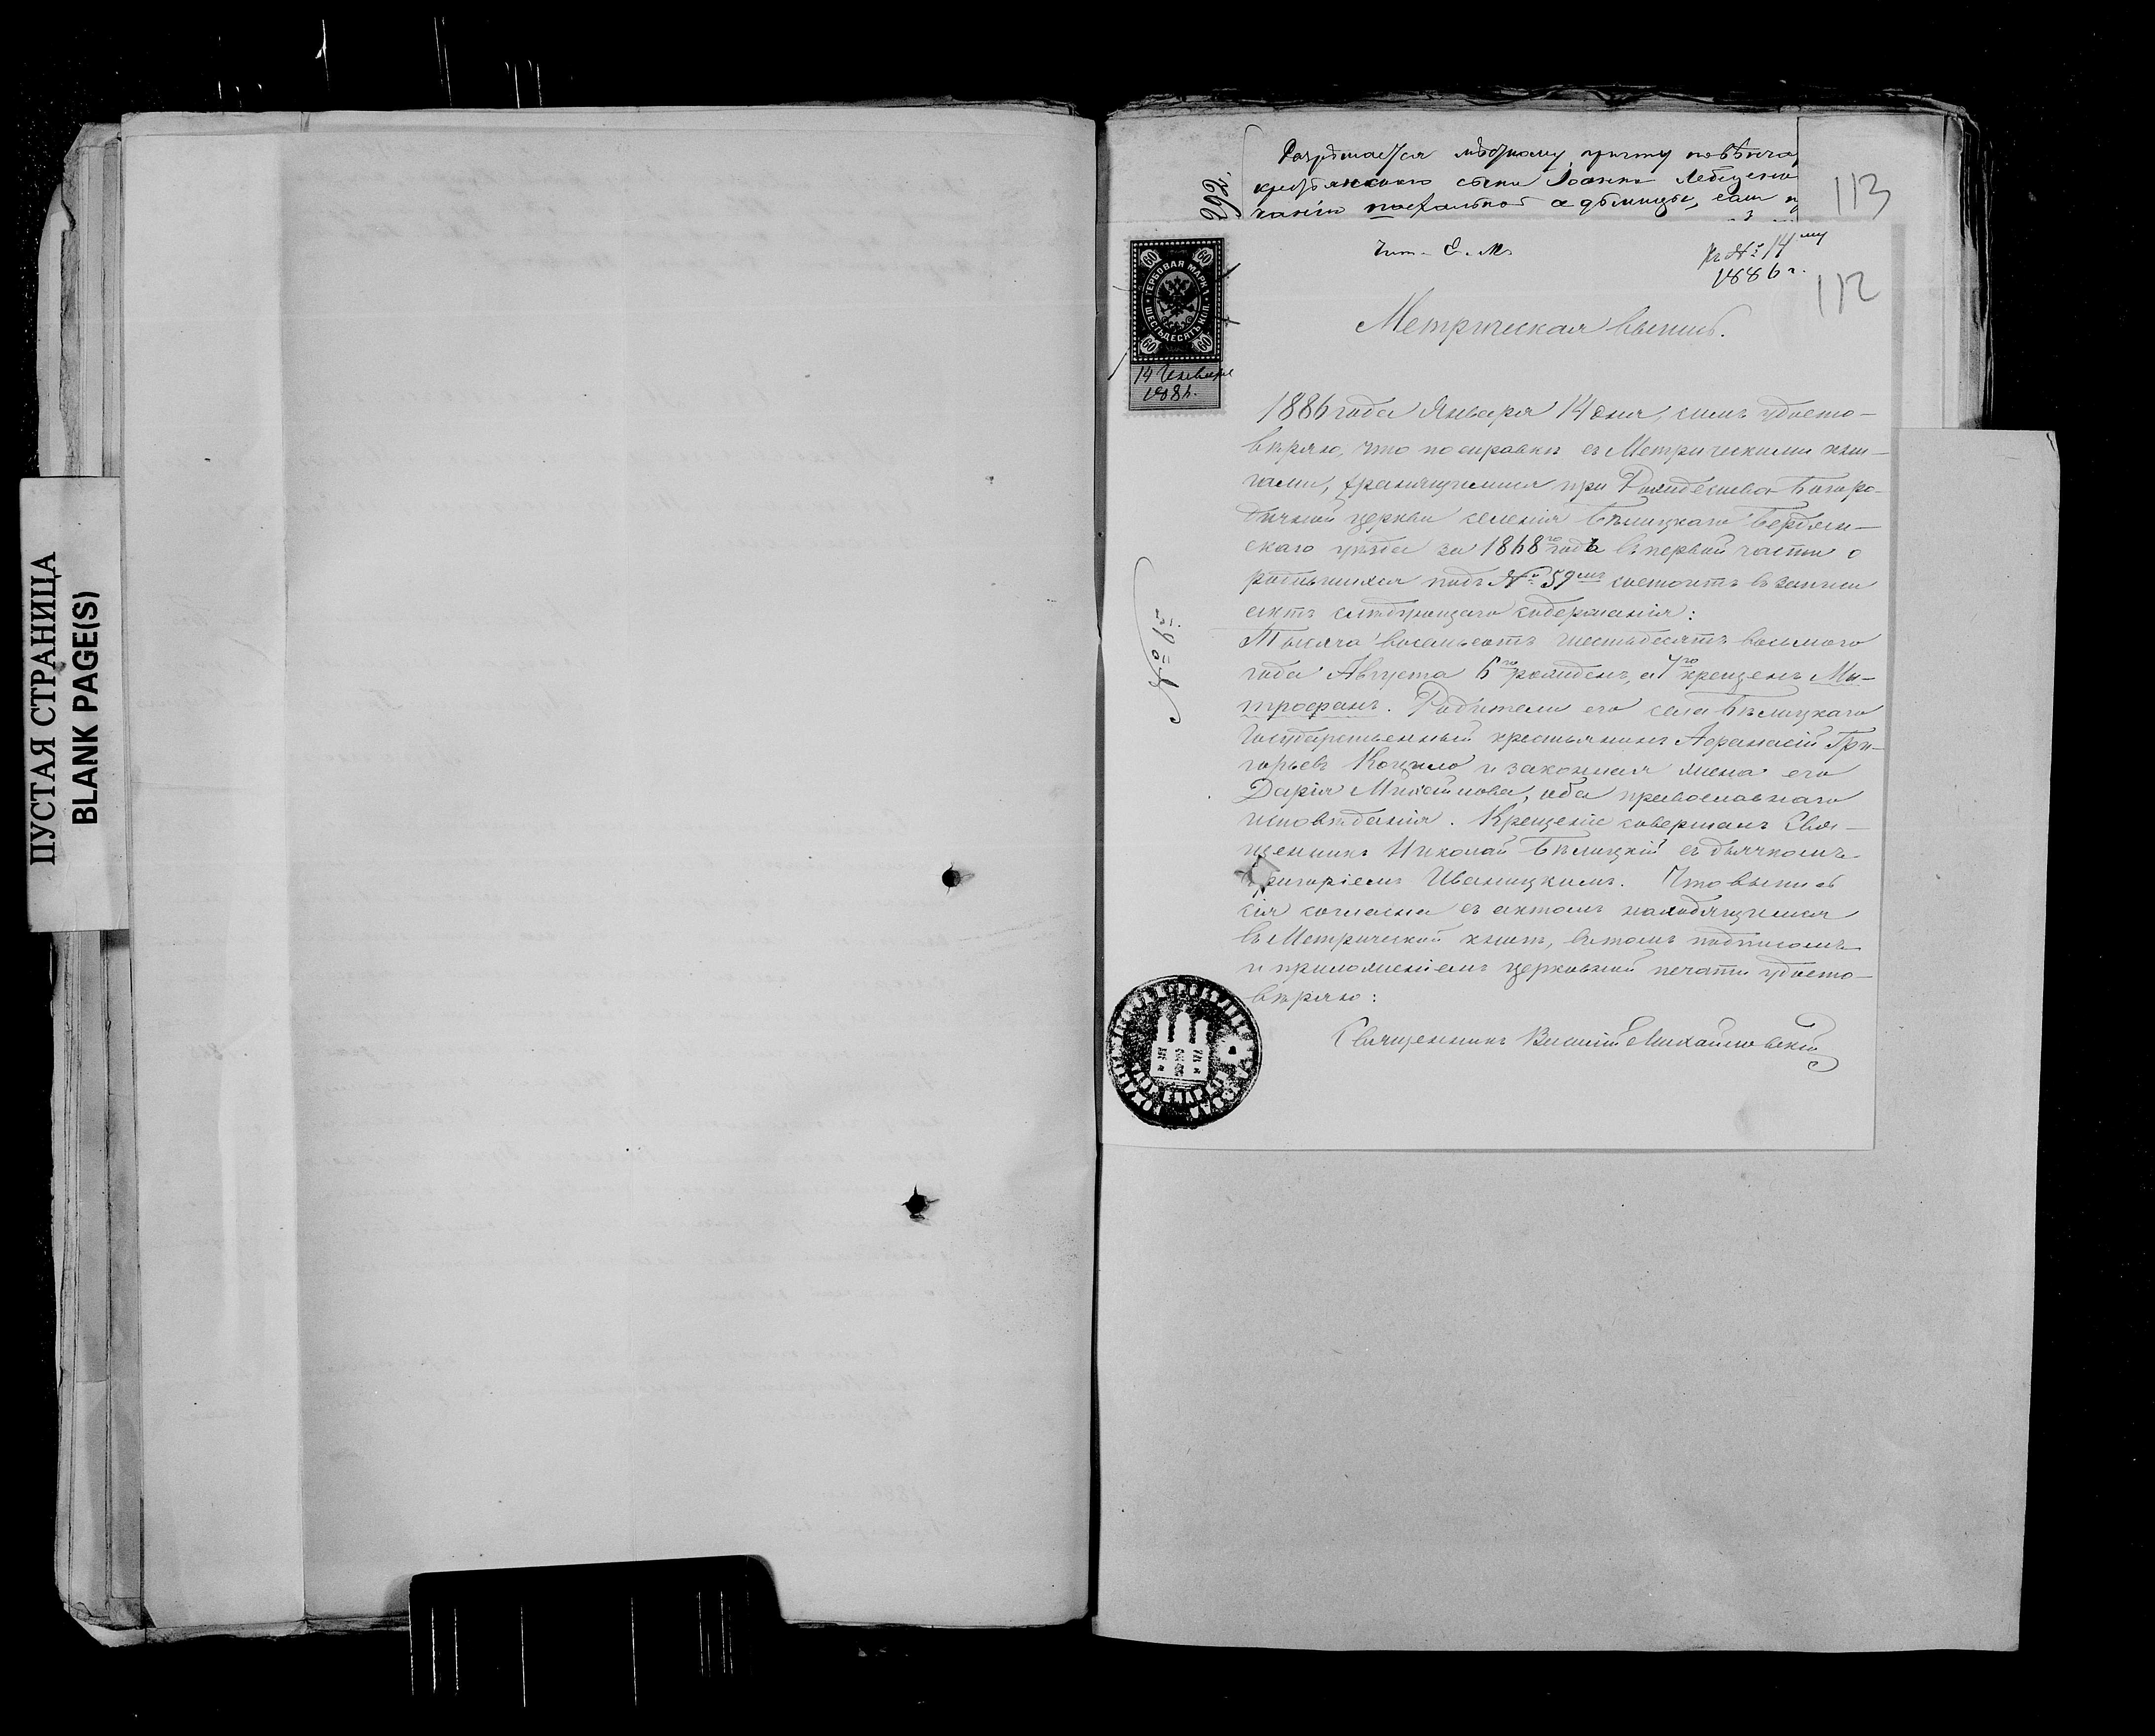 ПУСТАЯ СТРАНИЦА
BLANK PAGE(S)
292.
Разрѣшается мѣстному причту повѣнча
крестьянскаго сына Іоанна
чаніи пасхальной седьмицы, если
113
Чит. С. М.
Къ № 14му
1886 г.
112
ГЕРБОВАЯ МАРКА
ШЕСТЬДЕСЯТЪ КОП.
60 60
60 60
14 Января
1886.
Метрическая выпись.
1886 года Января 14 дня, симъ удосто-
вѣряю, что по справкѣ съ Метрическими кни-
гами, хранящимися при Рождество Богоро-
дичной церкви селенія Бѣлицкаго Бердян-
скаго уѣзда за 1868го годъ въ первой части о
родившихся подъ № 59мъ состоитъ въ записи
актъ слѣдующаго содержанія:
№ 65.
Тысяча восемьсотъ шестьдесятъ восьмого
года Августа 6го рожденъ, а 7го крещенъ Ми-
трофанъ. Родители его села Бѣлицкаго
Государственный крестьянинъ Афанасій Гри-
горьевъ Коцыло и законная жена его
Дарія Михайлова, оба православнаго
исповѣданія. Крещеніе совершалъ Свя-
щенникъ Николай Бѣлицкій съ дьячкомъ
Григоріемъ Иваницкимъ. Что выпись
сія согласна съ актомъ находящимся
въ Метрической книгѣ, въ томъ подписомъ
и приложеніемъ церковной печати удосто-
вѣряю:
Священникъ Василій Михайловскій